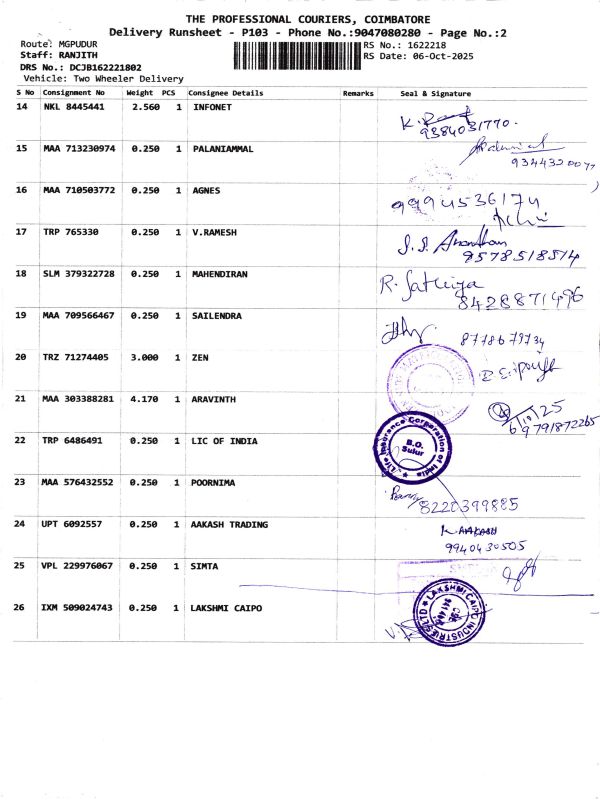 THE PROFESSIONAL COURIERS, COIMBATORE
Delivery Runsheet - P103 - Phone No.:9047080280 - Page No.:2
Route: MGPUDUR
RS No.: 1622218
Staff: RANJITH
RS Date: 06-Oct-2025
DRS No.: DCJB162221802
Vehicle: Two Wheeler Delivery
S No Consignment No Weight PCS Consignee Details Remarks Seal & Signature
14 NKL 8445441 2.560 1 INFONET
9384031770.
15 MAA 713230974 0.250 1 PALANIAMMAL
9344320077
16 MAA 710503772 0.250 1 AGNES
9994536174
17 TRP 765330 0.250 1 V.RAMESH
9578518514
18 SLM 379322728 0.250 1 MAHENDIRAN
R. Sathiya
8428871496
19 MAA 709566467 0.250 1 SAILENDRA
8778679734
20 TRZ 71274405 3.000 1 ZEN
21 MAA 303388281 4.170 1 ARAVINTH
6/10/25
9791872265
22 TRP 6486491 0.250 1 LIC OF INDIA
Life Insurance Corporation of India
B.O.
Sulur
23 MAA 576432552 0.250 1 POORNIMA
8220399885
24 UPT 6092557 0.250 1 AAKASH TRADING
K. AAKASH
9940430505
25 VPL 229976067 0.250 1 SIMTA
26 IXM 509024743 0.250 1 LAKSHMI CAIPO
LAKSHMI CAIPO INDUSTRIES LTD
CBE
641 406